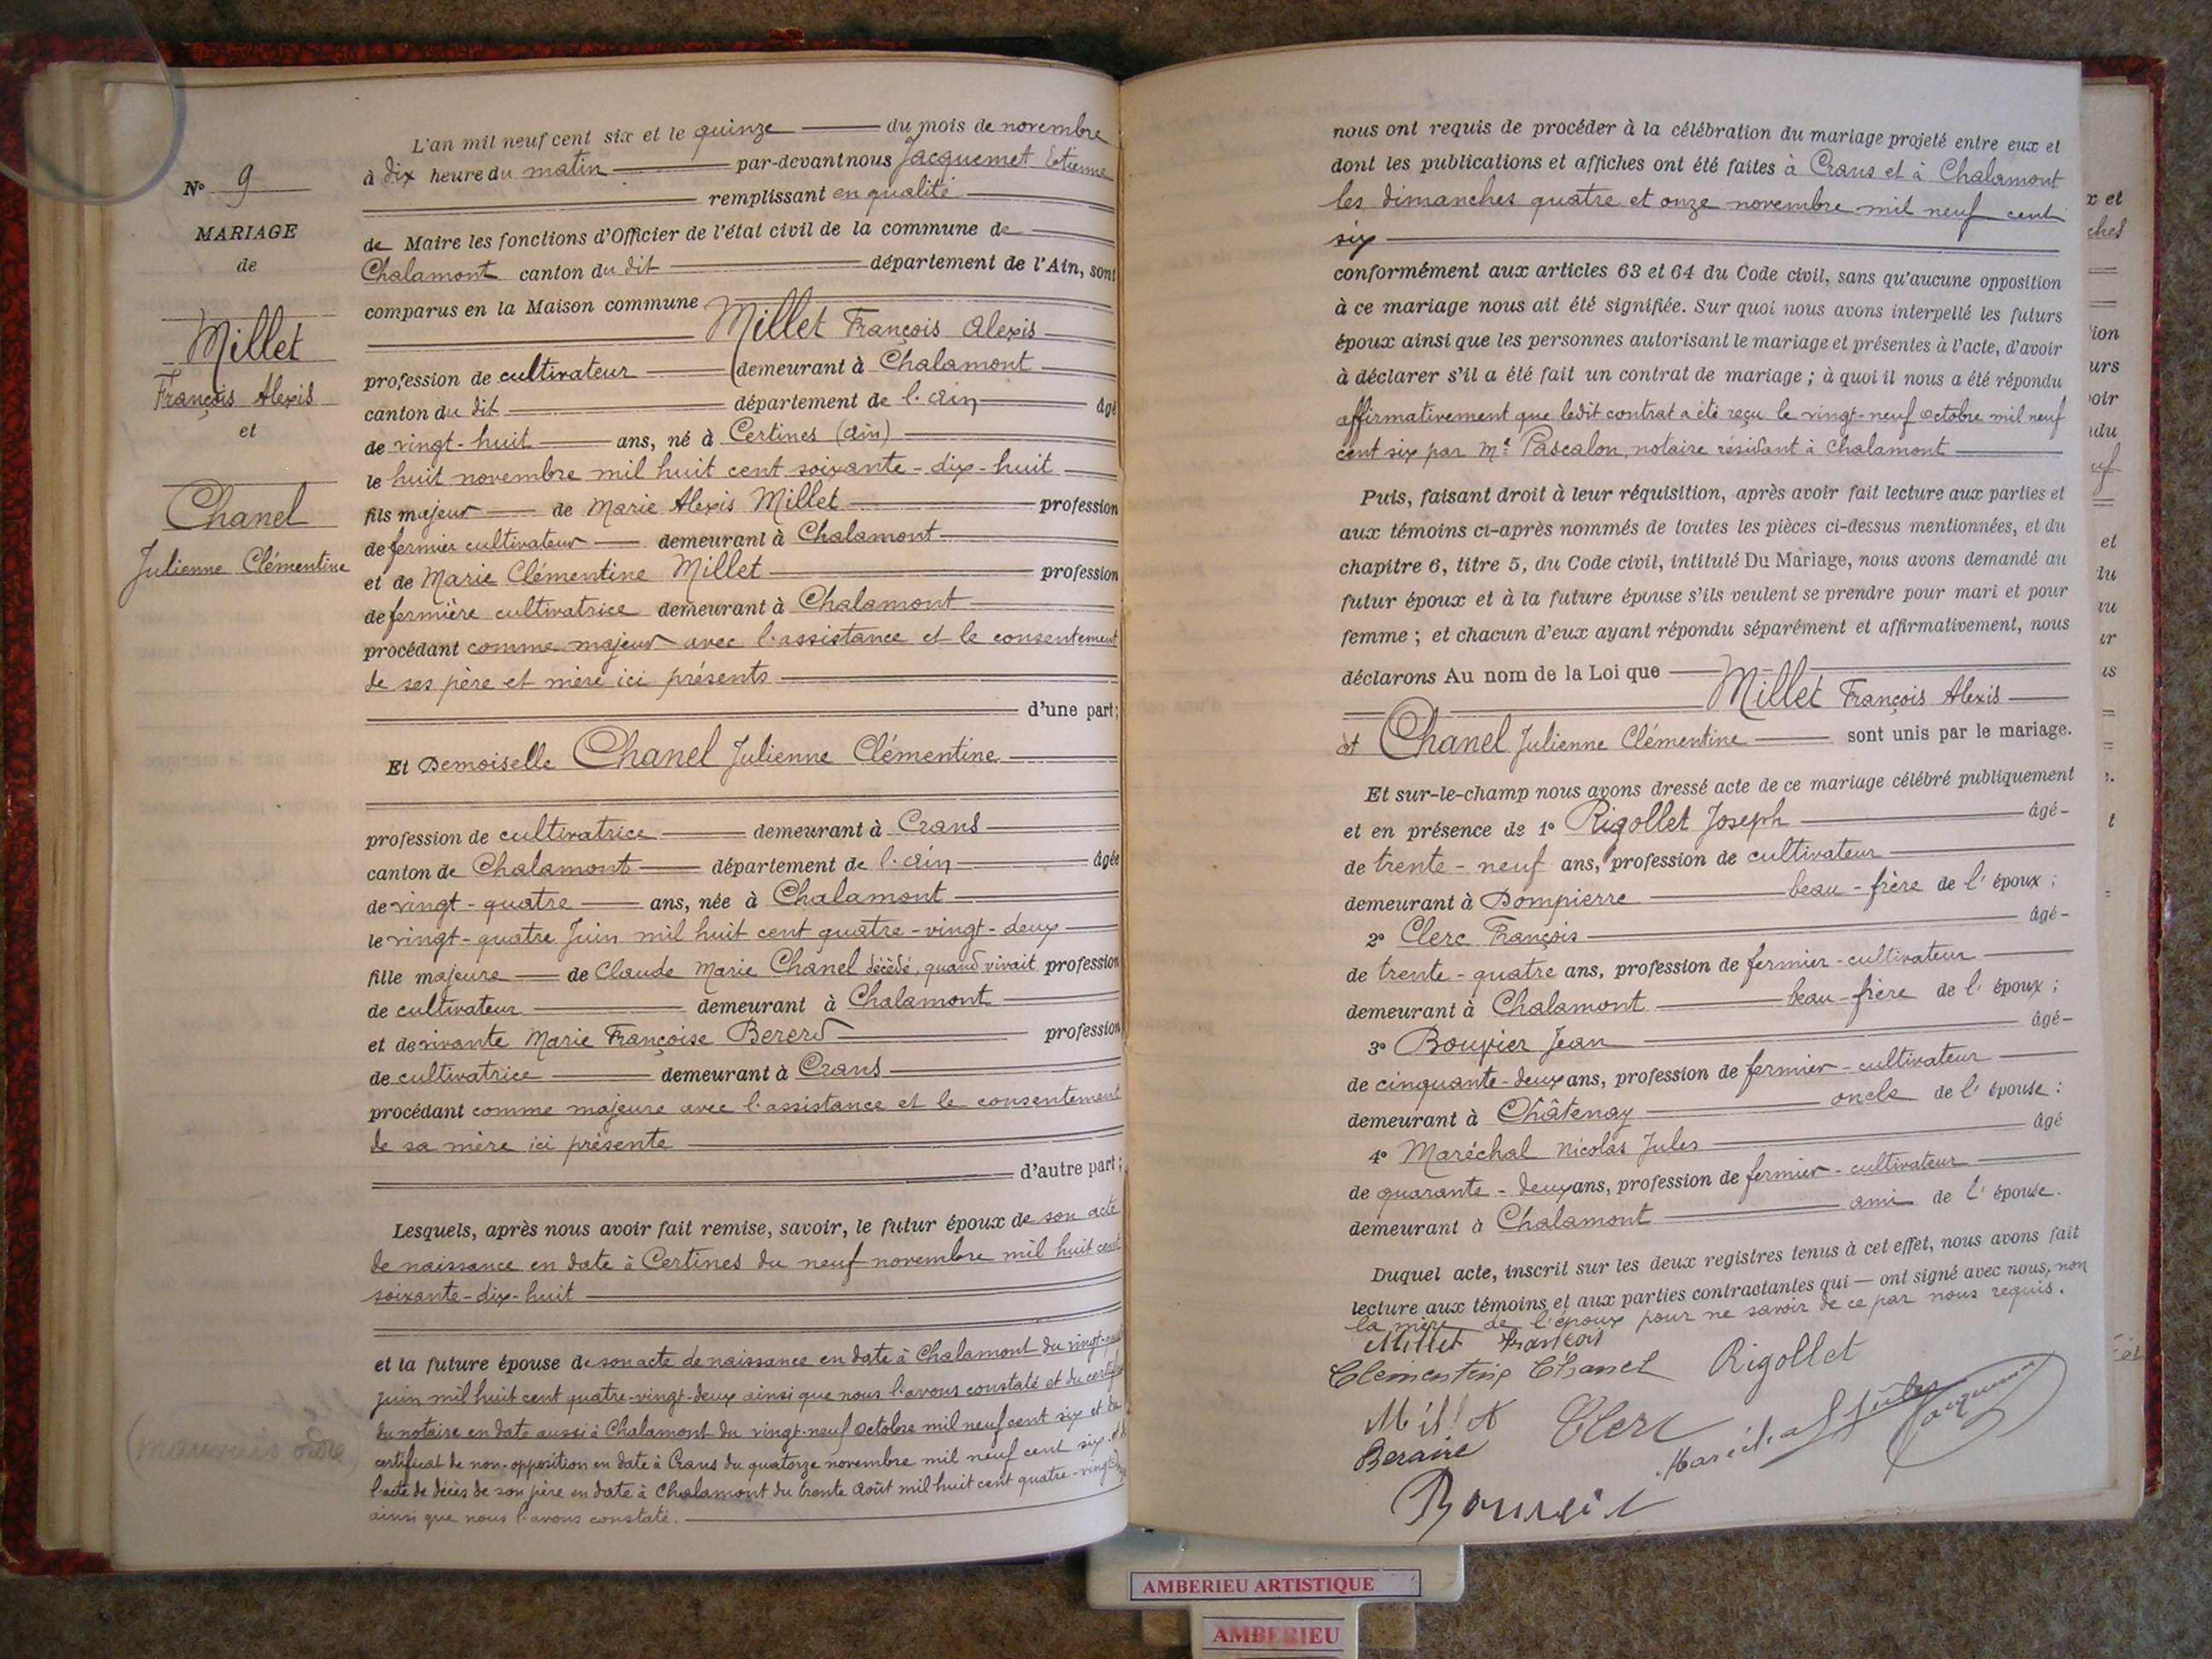 N° 9
MARIAGE
de
Millet
François Alexis
et
Chanel
Julienne Clémentine
(mauvais ordre)
L'an mil neuf cent six et le quinze du mois de novembre
à dix heure du matin par-devant nous Jacquemet Etienne
remplissant en qualité
de Maire les fonctions d'Officier de l'état civil de la commune de
Chalamont canton du dit département de l'Ain, sont
comparus en la Maison commune
Millet François Alexis
profession de cultivateur demeurant à Chalamont
canton du dit département de l'Ain âgé
de vingt-huit ans, né à Certines (Ain)
le huit novembre mil huit cent soixante-dix-huit
fils majeur de Marie Alexis Millet profession
de fermier cultivateur demeurant à Chalamont
et de Marie Clémentine Millet profession
de fermière cultivatrice demeurant à Chalamont
procédant comme majeur avec l'assistance et le consentement
de ses père et mère ici présents
d'une part;
Et Demoiselle Chanel Julienne Clémentine
profession de cultivatrice demeurant à Crans
canton de Chalamont département de l'Ain âgée
de vingt-quatre ans, née à Chalamont
le vingt-quatre Juin mil huit cent quatre-vingt-deux
fille majeure de Claude Marie Chanel décédé, quand vivait profession
de cultivateur demeurant à Chalamont
et de vivante Marie Françoise Bererd profession
de cultivatrice demeurant à Crans
procédant comme majeure avec l'assistance et le consentement
de sa mère ici présente
d'autre part;
Lesquels, après nous avoir fait remise, savoir, le futur époux de son acte
de naissance en date à Certines du neuf novembre mil huit cent
soixante-dix-huit
et la future épouse de son acte de naissance en date à Chalamont du vingt-
juin mil huit cent quatre-vingt-deux ainsi que nous l'avons constaté et du certificat
du notaire en date aussi à Chalamont du vingt-neuf octobre mil neuf cent six et du
certificat de non-opposition en date à Crans du quatorze novembre mil neuf cent six et de
l'acte de décès de son père en date à Chalamont du trente Août mil huit cent quatre-vingt
ainsi que nous l'avons constaté.
nous ont requis de procéder à la célébration du mariage projeté entre eux et
dont les publications et affiches ont été faites à Crans et à Chalamont
les dimanches quatre et onze novembre mil neuf cent
six
conformément aux articles 63 et 64 du Code civil, sans qu'aucune opposition
à ce mariage nous ait été signifiée. Sur quoi nous avons interpellé les futurs
époux ainsi que les personnes autorisant le mariage et présentes à l'acte, d'avoir
à déclarer s'il a été fait un contrat de mariage; à quoi il nous a été répondu
affirmativement que ledit contrat a été reçu le vingt-neuf octobre mil neuf
cent six par Me Pascalon, notaire résidant à Chalamont
Puis, faisant droit à leur réquisition, après avoir fait lecture aux parties et
aux témoins ci-après nommés de toutes les pièces ci-dessus mentionnées, et du
chapitre 6, titre 5, du Code civil, intitulé Du Mariage, nous avons demandé au
futur époux et à la future épouse s'ils veulent se prendre pour mari et pour
femme; et chacun d'eux ayant répondu séparément et affirmativement, nous
déclarons Au nom de la Loi que
Millet François Alexis
et Chanel Julienne Clémentine sont unis par le mariage.
Et sur-le-champ nous avons dressé acte de ce mariage célébré publiquement
et en présence de 1° Rigollet Joseph âgé
de trente-neuf ans, profession de cultivateur
demeurant à Dompierre beau-frère de l'époux;
2° Clerc François âgé
de trente-quatre ans, profession de fermier-cultivateur
demeurant à Chalamont beau-frère de l'époux;
3° Bouvier Jean âgé
de cinquante-deux ans, profession de fermier-cultivateur
demeurant à Châtenay oncle de l'épouse:
4° Maréchal Nicolas Jules âgé
de quarante-deux ans, profession de fermier-cultivateur
demeurant à Chalamont ami de l'épouse.
Duquel acte, inscrit sur les deux registres tenus à cet effet, nous avons fait
lecture aux témoins et aux parties contractantes qui ont signé avec nous, non
la mère de l'époux pour ne savoir de ce par nous requis.
Millet François
Clementine Chanel Rigollet
Millet Clerc Maréchal Jules Jacquemet
Beraire
Bouvier
AMBERIEU ARTISTIQUE
AMBERIEU